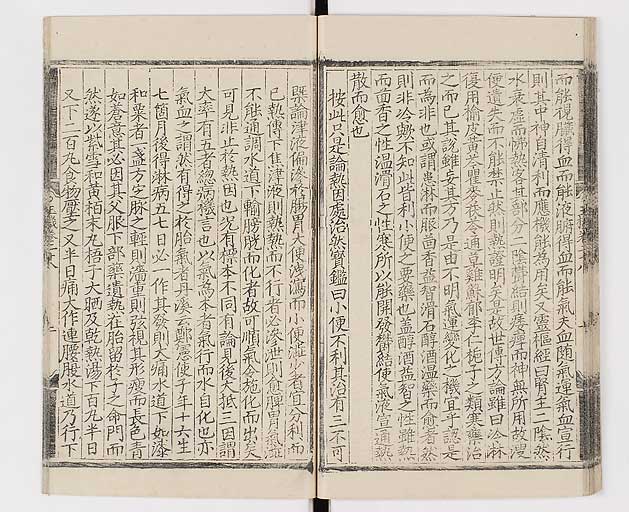 而能視臟得血而能液腑得血而能氣夫血隨氣運氣血宣行
則其中神自清利而應機能為用矣又靈樞經曰腎主二陰然
水衰虛而怫熱客其部分二陰鬱結則痿痺而神無所用故溲
便遺失而不能禁止然則熱證明矣是故世傳方論雖曰冷淋
復用榆皮黃芩瞿麥茯苓通草雞蘇郁李仁梔子之類寒藥治
之而已其說雖妄其方乃是由不明氣運變化之機宜乎認是
而為非也或謂患淋而服茴香益智滑石醇酒溫藥而愈者然
則非冷歟不知此皆利小便之要藥也蓋醇酒益智之性雖熱
而茴香之性溫滑石之性寒所以能開發鬱結使氣液宣通熱
散而愈也
按此只是論熱因處治然寶鑑曰小便不利其治有三不可
槩論津液偏滲於腸胃大便洩瀉而小便澁少者宜分利而
已熱搏下焦津液則熱熱而不行者必滲泄則愈脾胃氣澁
不能通調水道下輸膀胱而化者故可順氣令施化而出矣
可見非止於熱因也況有標本不同有論見後大抵三因謂
大率有五者總病機言也以氣為本者氣行而水自化也亦
氣血之謂然有得之於胎氣者丹溪云鄭廉使子年十六生
七箇月後得淋病五七日必一作其發則大痛水道下如漆
和粟者一盞方定脉之輕則濇重則弦視其形瘦而長色青
如蒼意其必因其父服下部藥遺熱在胎留於子之命門而
然遂以紫雪和黃栢末丸梧子大晒及乾熱湯下百丸半日
又下二百丸食物壓之又半日痛大作連腰腹水道乃行下